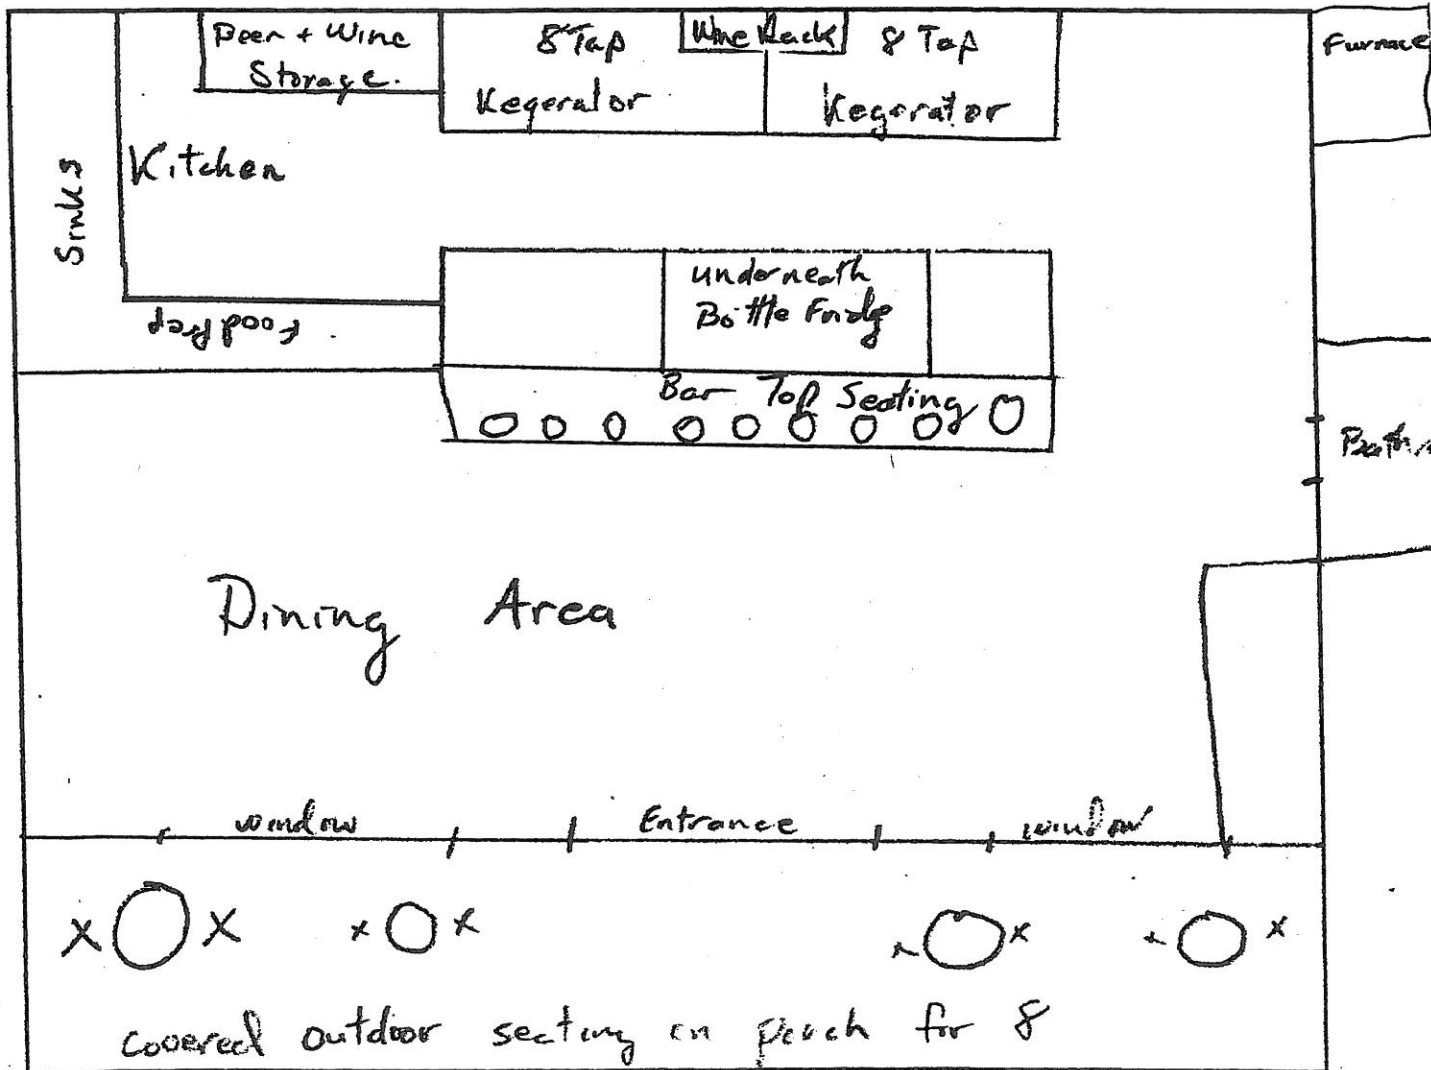 Beer + Wine
Storage.
8 Tap
Kegerator
Wine Rack
8 Tap
Kegerator
Furnace
Kitchen
Sinks
Food Prep
underneath
Bottle Fridge
Bar Top Seating
Dining Area
window
Entrance
window
covered outdoor seating on porch for 8